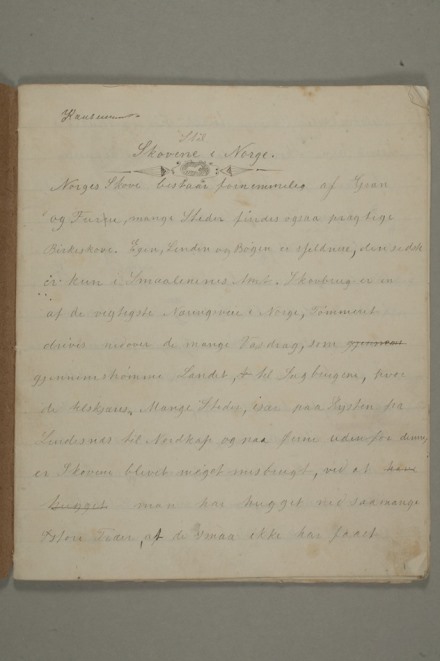 Stil
Skovene i Norge.
Norges Skove bestaar fornemmelig af Gran
og Furru, mange Steder findes ogsaa prægtige
Birkeskove. Egen, Linden og Bøgen er sjeldnere, den sidste
er kun i Smaalenenes Amt. Skovbrug er en
af de vigtigste Næringsveie i Norge, Tømmeret
driver nedover de mange Vasdrag, som gjennem
gjennemstrømme Landet, til Sagbrugene, hvor
de tilskjæres. Mange Steder, især paa Kysten fra
Lindesnæs til Nordkap og paa Øerne udenfor denne,
er Skovene blivet meget misbrugt, ved at have
hugget man har hugget ned saa mange
store Træer, at de Smaa ikke har faaet